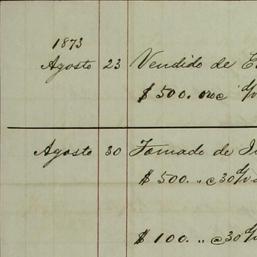 1873
Agosto 23 Vendido de
$500.
Agosto 30 Tomado de
$500. " @ 30
$100. " @ 30